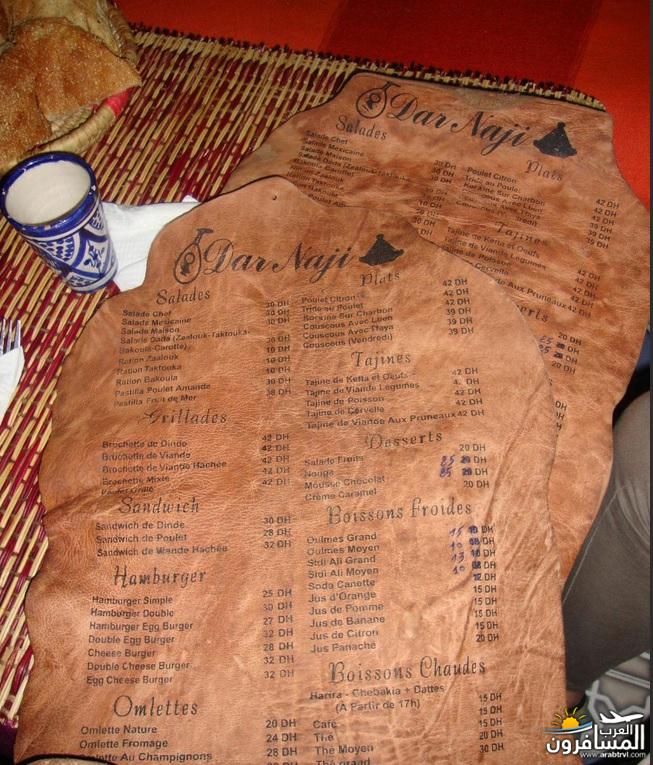 Dar Naji
Salades
Salade Chef 30 DH
Salade Mexicaine 30 DH
Salade Maison 30 DH
Salade Dada (Zealouk-Taktouka-
Bakoula-Carotte) 30 DH
Ration Zaalouk 10 DH
Ration Taktouka 10 DH
Ration Bakoula 10 DH
Pastilla Poulet Amande 30 DH
Pastilla Fruit de Mer 38 DH
Grillades
Brochette de Dinde 42 DH
Brochette de Viande 42 DH
Brochette de Viande Hachée 42 DH
Brochette Mixte 42 DH
Poulet Grillé 42 DH
Sandwich
Sandwich de Dinde 30 DH
Sandwich de Poulet 28 DH
Sandwich de Viande Hachée 32 DH
Hamburger
Hamburger Simple 25 DH
Hamburger Double 30 DH
Hamburger Egg Burger 27 DH
Double Egg Burger 32 DH
Cheese Burger 28 DH
Double Cheese Burger 32 DH
Egg Cheese Burger 32 DH
Omlettes
Omlette Nature 20 DH
Omlette Fromage 24 DH
Omlette Au Champignons 28 DH
Plats
Poulet Citron 42 DH
Tride au Poulet 42 DH
Korxine Sur Charbon 42 DH
Couscous Avec Lben 39 DH
Couscous Avec Tfaya 39 DH
Couscous (Vendredi) 39 DH
Tajines
Tajine de Kefta et Oeufs 42 DH
Tajine de Viande Légumes 4. DH
Tajine de Poisson 42 DH
Tajine de Cervelle 42 DH
Tajine de Viande Aux Pruneaux 42 DH
Desserts
Salade Fruits 20 DH
Nouga 25 DH
Mousse Chocolat 25 DH
Crème Caramel 20 DH
Boissons Froides
Oulmes Grand 15 DH
Oulmes Moyen 10 DH
Sidi Ali Grand 13 DH
Sidi Ali Moyen 10 DH
Soda Canette 12 DH
Jus d'Orange 15 DH
Jus de Pomme 15 DH
Jus de Banane 15 DH
Jus de Citron 15 DH
Jus Panaché 20 DH
Boissons Chaudes
Harira - Chebakia + Dattes
(À Partir de 17h)
Café 15 DH
Thé 15 DH
Thé Moyen 15 DH
Thé grand 30 DH
Dar Naji
Salades
Salade Chef 30 DH
Salade Mexicaine 30 DH
Salade Maison 30 DH
Plats
Poulet Citron 42 DH
42 DH
42 DH
39 DH
39 DH
39 DH
Tajines
Tajine de Kefta et Oeufs 42 DH
Tajine de Viande Légumes 42 DH
42 DH
42 DH
Aux Pruneaux 42 DH
20 DH
25 DH
25 DH
20 DH
العرب
المسافرون
www.arabtrvl.com